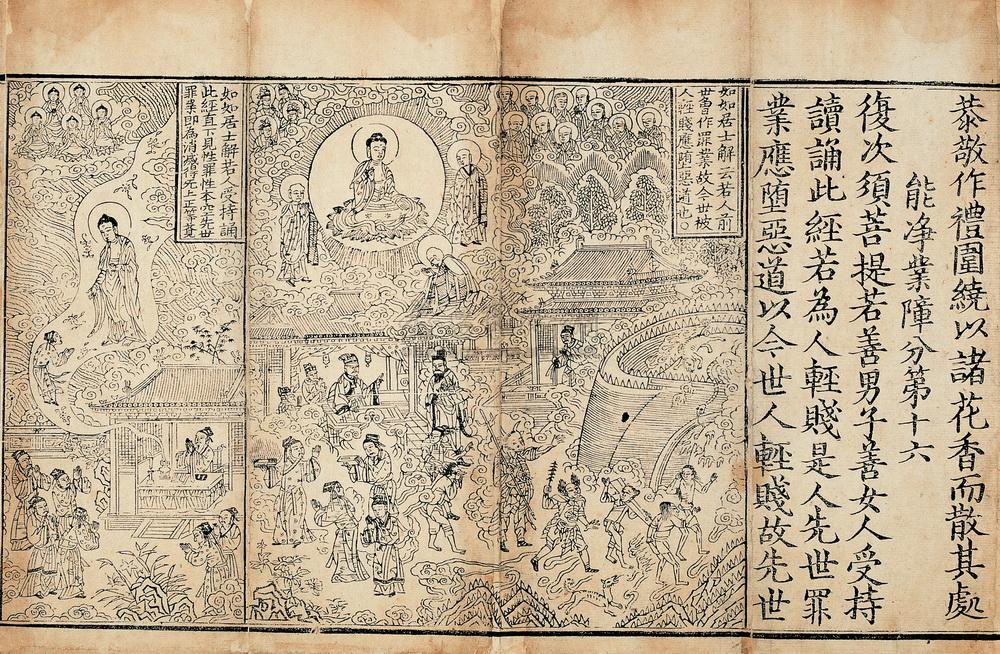 恭敬作禮圍繞以諸花香而散其處
能净業障分第十六
復次須菩提若善男子善女人受持
讀誦此經若為人輕賤是人先世罪
業應墮惡道以今世人輕賤故先世
如如居士解云若人前
世曾作罪業故今世被
人輕賤應墮惡道也
如如居士解若人受持誦
此經直下見性罪性本空先世
罪業即為消滅得无上正等菩